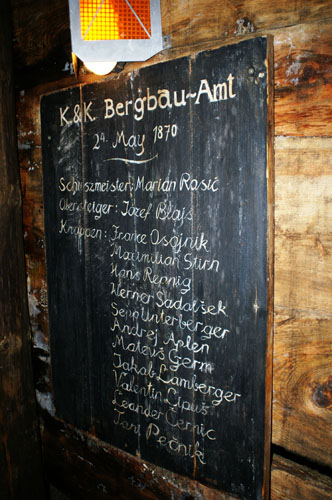 K.&K. Bergbau-Amt
24. May 1870
Schuszmeister: Marian Rasić
Obersteiger: Józef Blajs
Knappen: France Osojnik
Maximilian Stirn
Hans Rennig
Werner Sadolšek
Sepp Unterberger
Andrej Aplen
Matevš Germ
Jakob Lamberger
Valentin Cipuš
Leander Černic
Pečnik